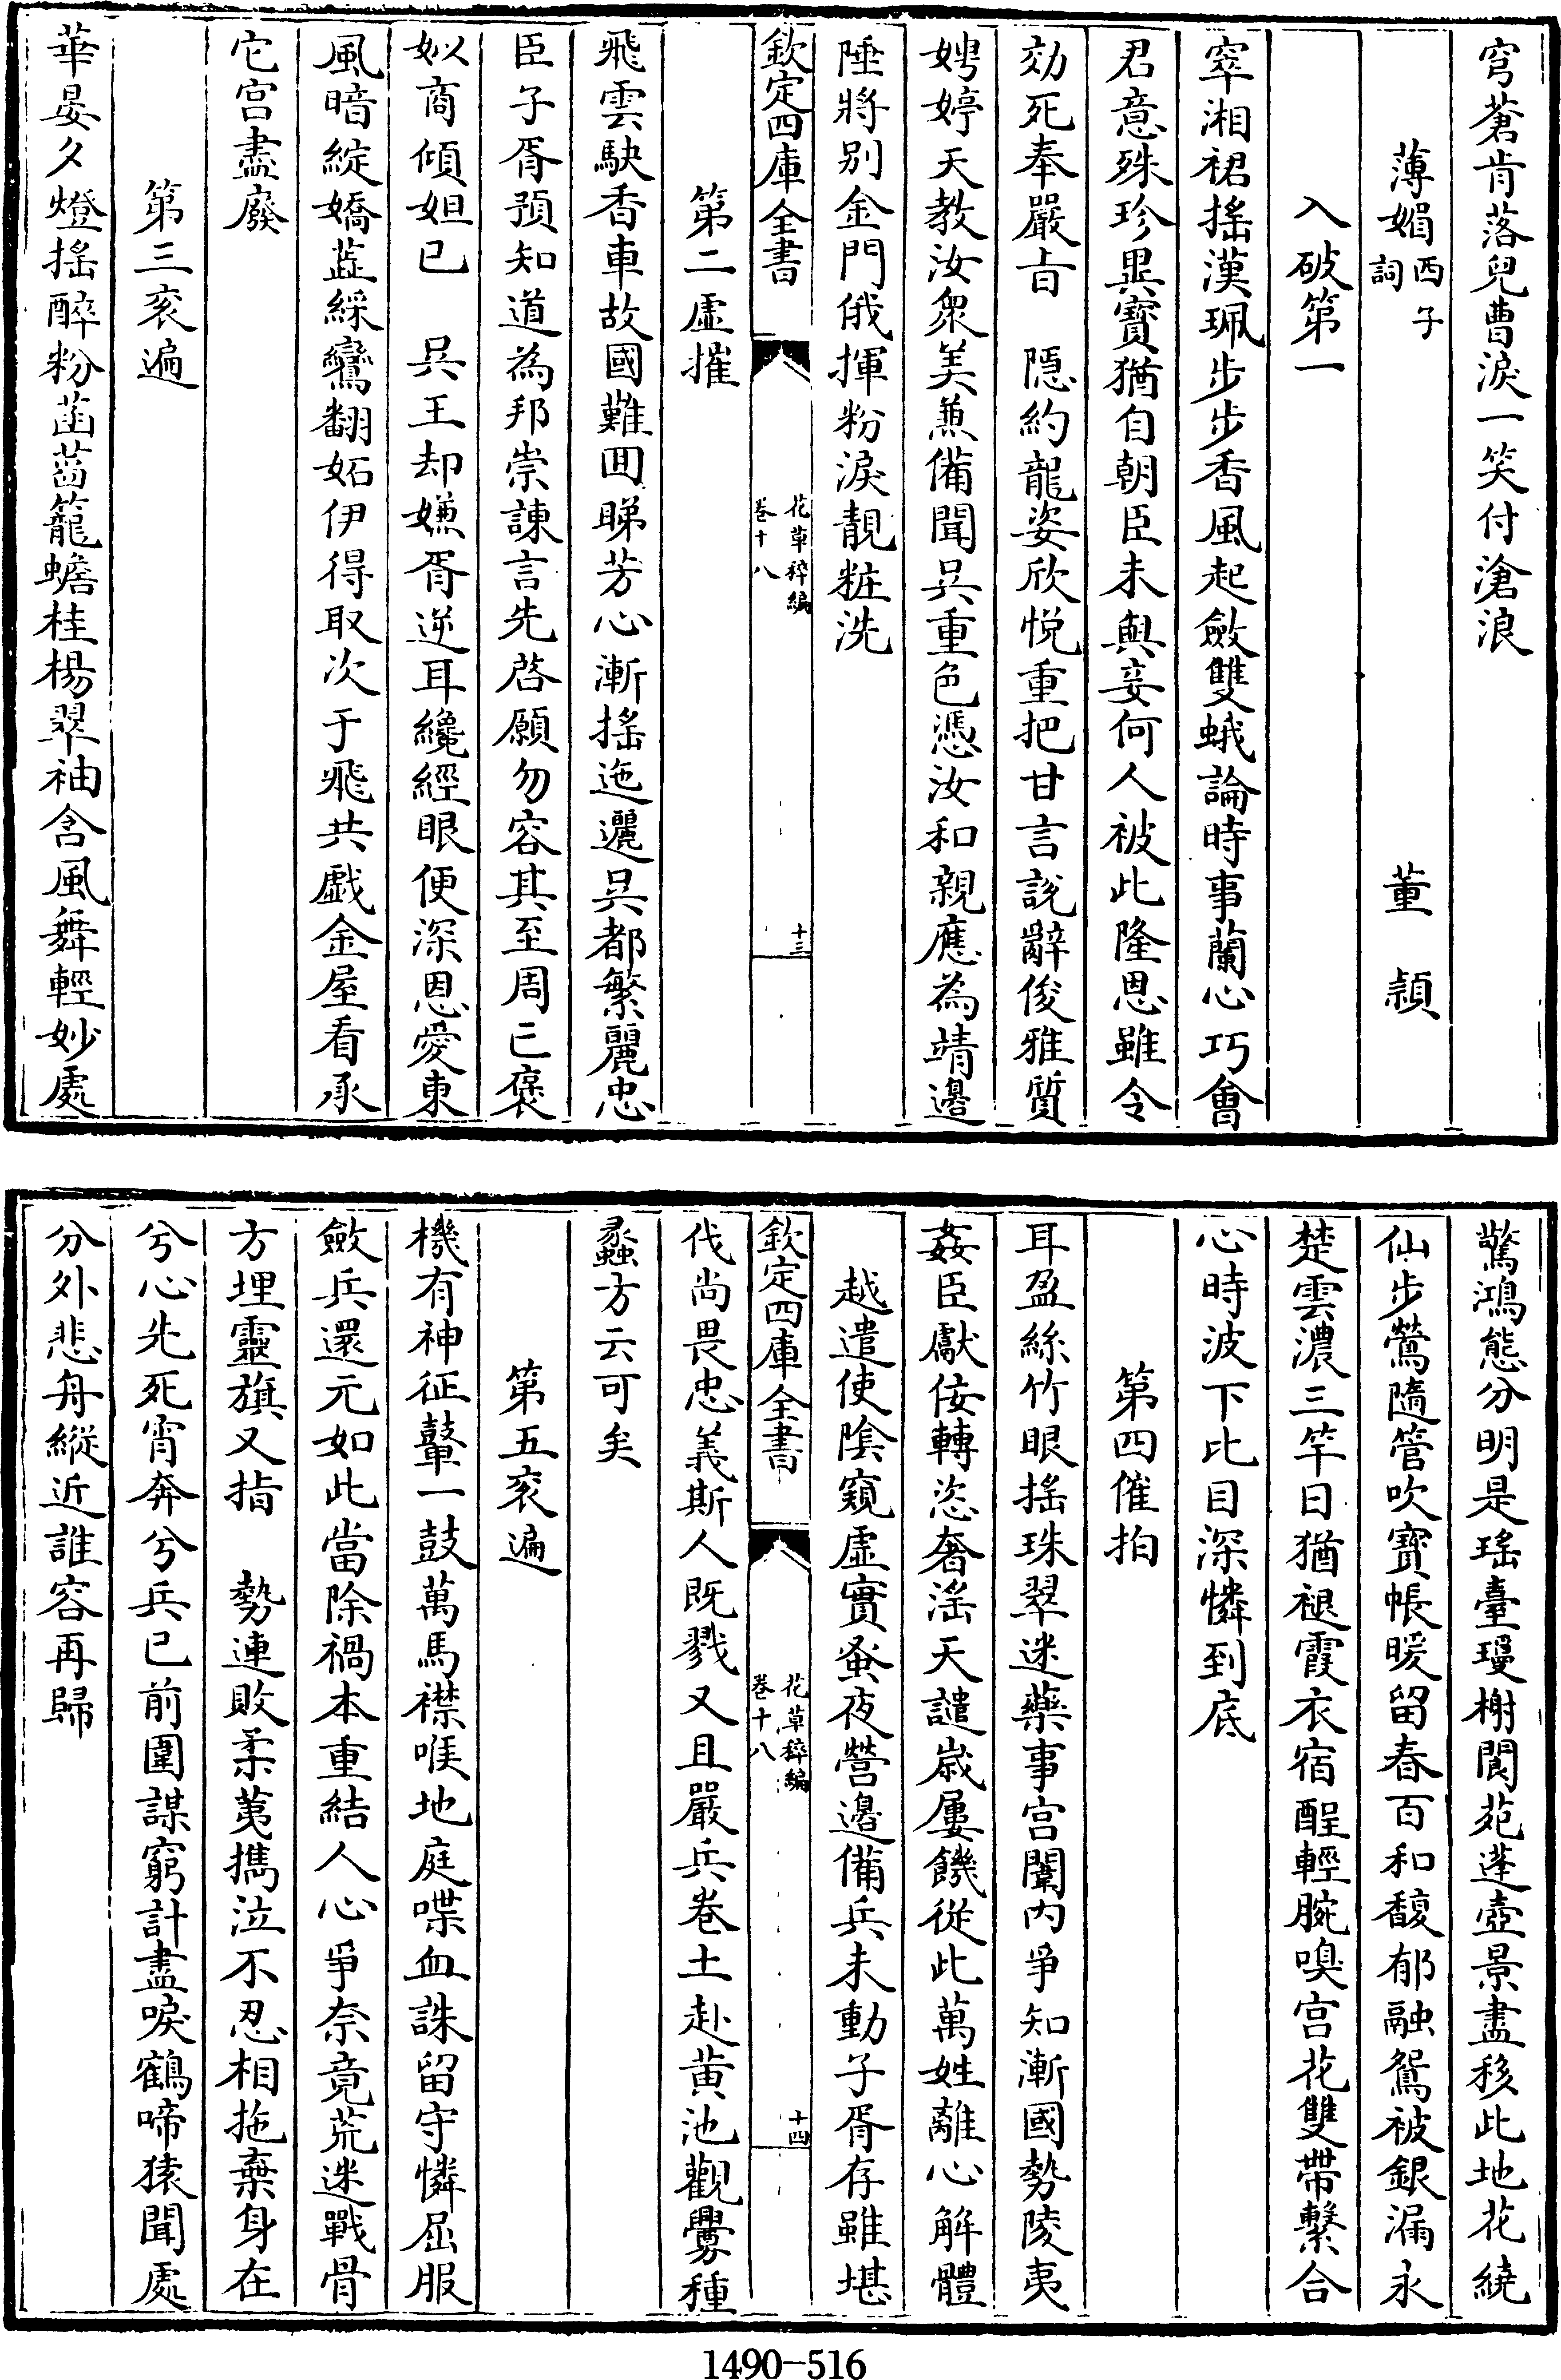 穹蒼肯落兒曹淚一笑付滄浪
薄媚西子詞　董穎
入破第一
窣湘裙搖漢珮步步香風起斂雙蛾論時事蘭心巧會
君意殊珍異寶猶自朝臣未與妾何人被此隆恩雖令
効死奉嚴旨　隱約龍姿欣悅重把甘言說辭俊雅質
娉婷天教汝衆美兼備聞吳重色憑汝和親應為靖邊
陲將別金門俄揮粉淚靚粧洗
欽定四庫全書　花草稡編卷十八　十三
第二虛摧
飛雲駃香車故國難囬睇芳心漸搖迤邐吳都繁麗忠
臣子胥預知道為邦崇諫言先啓願勿容其至周亡褒
姒商傾妲已　吳王却嫌胥逆耳纔經眼便深恩愛東
風暗綻嬌蘂綵鸞翻妬伊得取次于飛共戲金屋看承
它宫盡廢
第三衮遍
華宴夕燈搖醉粉菡萏籠蟾桂楊翠袖含風舞輕妙處
驚鴻態分明是瑤臺瓊榭閬苑蓬壺景盡移此地花繞
仙步鶯隨管吹寳帳暖留春百和馥郁融鴛被銀漏永
楚雲濃三竿日猶褪霞衣宿酲輕腕嗅宫花雙帶繫合
心時波下比目深憐到底
第四催拍
耳盈絲竹眼搖珠翠迷藥事宫闈内爭知漸國勢陵夷
姦臣獻佞轉恣奢淫天譴嵗屢饑從此萬姓離心解體
越遣使陰窺虛實蚤夜營邊備兵未動子胥存雖堪
欽定四庫全書　花草稡編卷十八　十四
伐尚畏忠義斯人既戮又且嚴兵卷土赴黄池觀釁種
蠡方云可矣
第五衮遍
機有神征鼙一鼓萬馬襟喉地庭喋血誅留守憐屈服
斂兵還元如此當除禍本重結人心爭奈竟荒迷戰骨
方埋靈旗又指　勢連敗柔荑擕泣不忍相拖棄身在
兮心先死宵奔兮兵已前圍謀窮計盡唳鶴啼猿聞處
分外悲舟縱近誰容再歸
1490-516